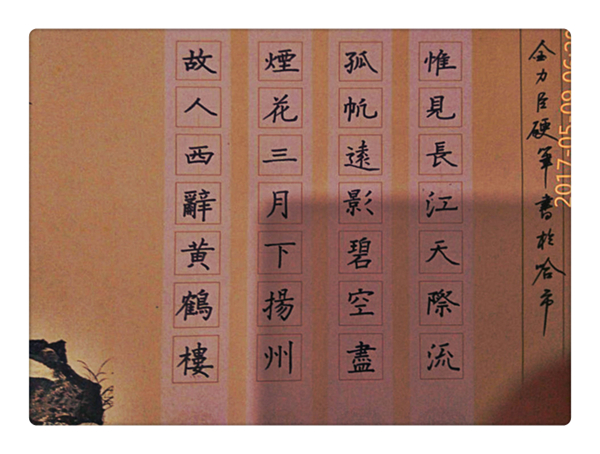 故人西辭黄鶴樓
煙花三月下揚州
孤帆遠影碧空盡
惟見長江天際流
全力臣硬筆書於哈市
2017-05-09